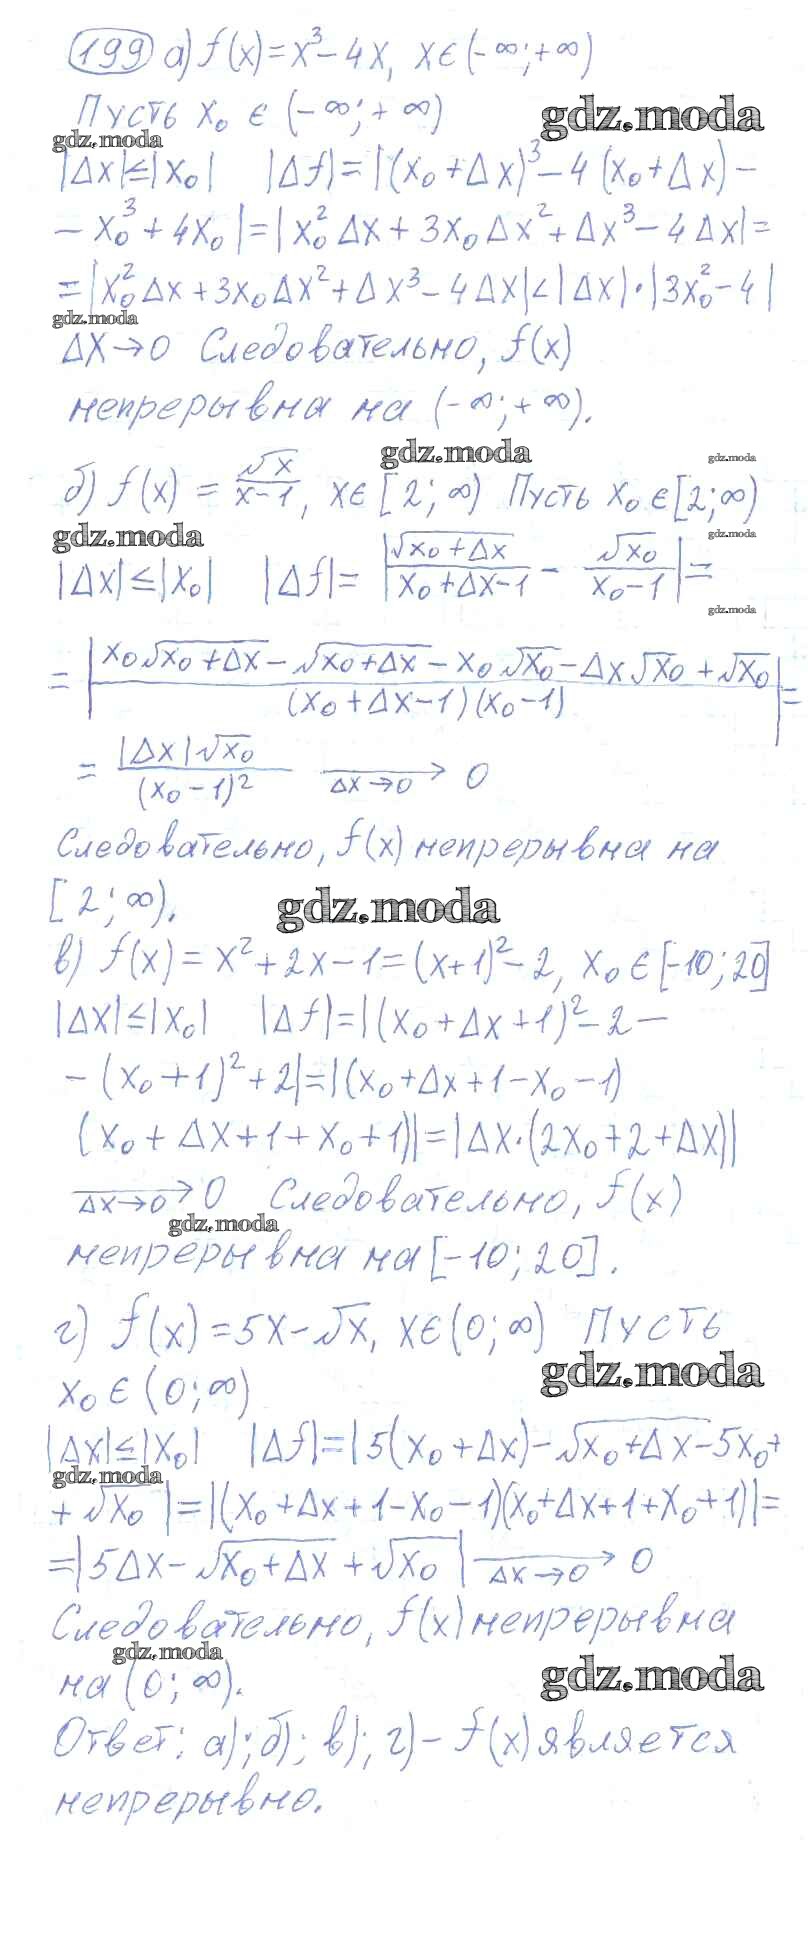 199 а) f(x) = x³ – 4x, x ∈ (–∞; +∞)
Пусть x₀ ∈ (–∞; +∞)
gdz.moda
gdz.moda
|Δx| ≤ |x₀| |Δf| = |(x₀ + Δx)³ – 4(x₀ + Δx) –
– x₀³ + 4x₀| = |x₀²Δx + 3x₀Δx² + Δx³ – 4Δx| =
= |x₀²Δx + 3x₀Δx² + Δx³ – 4Δx| < |Δx| · |3x₀² – 4|
gdz.moda
Δx → 0 Следовательно, f(x)
непрерывна на (–∞; +∞).
gdz.moda
gdz.moda
б) f(x) = √x / (x – 1), x ∈ [2; ∞) Пусть x₀ ∈ [2; ∞)
gdz.moda
gdz.moda
|Δx| ≤ |x₀| |Δf| = |√(x₀ + Δx) / (x₀ + Δx – 1) – √x₀ / (x₀ – 1)| =
gdz.moda
= |(x₀√(x₀ + Δx) – √(x₀ + Δx) – x₀√x₀ – Δx√x₀ + √x₀) / ((x₀ + Δx – 1)(x₀ – 1))| =
= |Δx|√x₀ / (x₀ – 1)² →(Δx → 0) 0
Следовательно, f(x) непрерывна на
[2; ∞).
gdz.moda
в) f(x) = x² + 2x – 1 = (x + 1)² – 2, x₀ ∈ [–10; 20]
|Δx| ≤ |x₀| |Δf| = |(x₀ + Δx + 1)² – 2 –
– (x₀ + 1)² + 2| = |(x₀ + Δx + 1 – x₀ – 1)
(x₀ + Δx + 1 + x₀ + 1)| = |Δx · (2x₀ + 2 + Δx)|
→(Δx → 0) 0 Следовательно, f(x)
gdz.moda
непрерывна на [–10; 20].
г) f(x) = 5x – √x, x ∈ (0; ∞) Пусть
x₀ ∈ (0; ∞)
gdz.moda
|Δx| ≤ |x₀| |Δf| = |5(x₀ + Δx) – √(x₀ + Δx) – 5x₀ +
gdz.moda
+ √x₀| = |(x₀ + Δx + 1 – x₀ – 1)(x₀ + Δx + 1 + x₀ + 1)| =
= |5Δx – √(x₀ + Δx) + √x₀| →(Δx → 0) 0
Следовательно, f(x) непрерывна
gdz.moda
на (0; ∞).
gdz.moda
Ответ: а); б); в); г) – f(x) является
непрерывно.